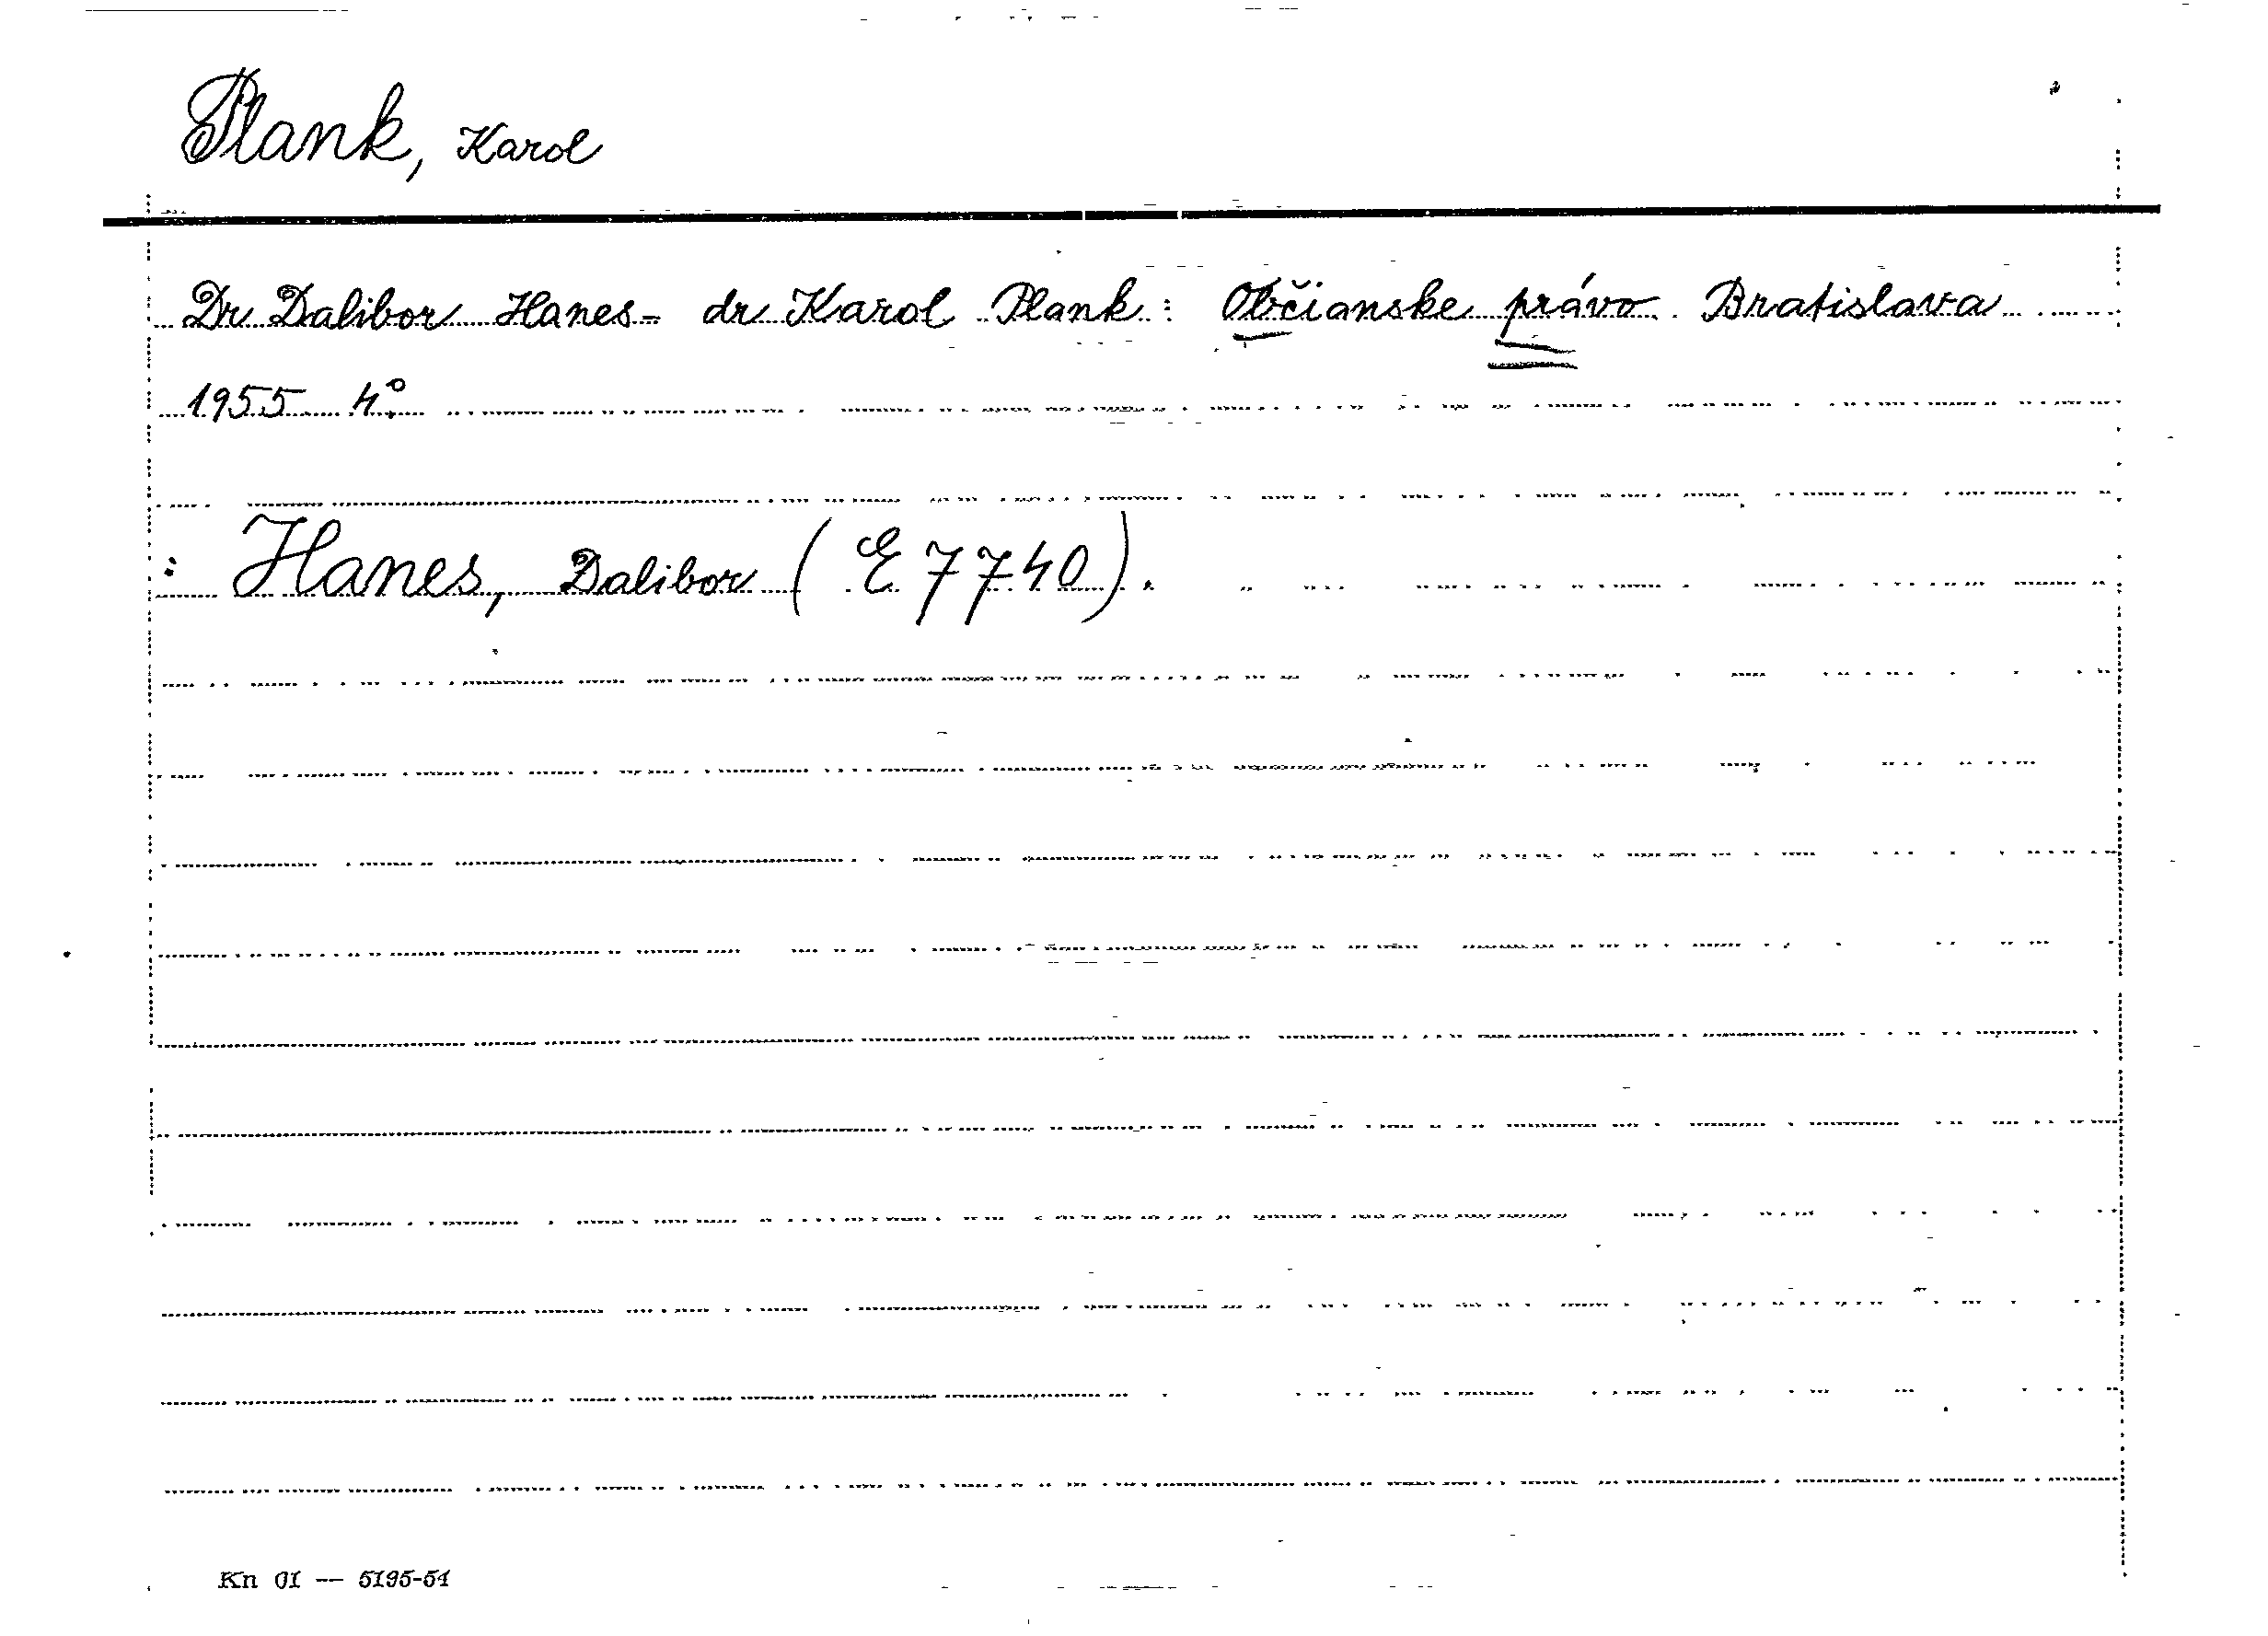 Plank, Karol
Dr Dalibor Hanes - dr Karol Plank : Občianske právo. Bratislava
1955 4°.
: Hanes, Dalibor (E 7740).
Kn 01 — 5195-54